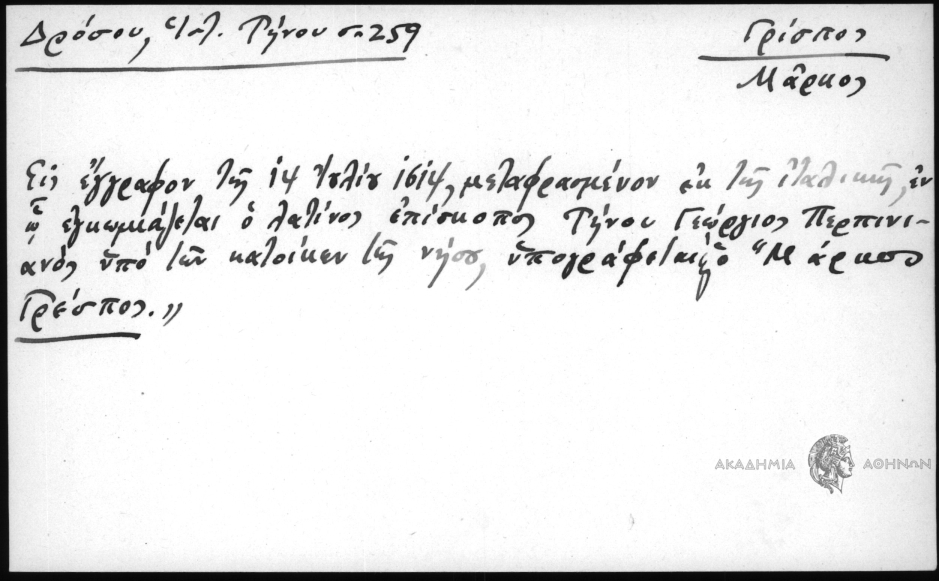 Δρόσου, Ἱστ. Τήνου σ. 259
Γρίσπος
Μᾶρκος
Εἰς ἔγγραφον τῆς 14 Ἰουλίου 1614, μεταφρασμένον ἐκ τῆς ἰταλικῆς, ἐν
ᾧ ἐγκωμιάζεται ὁ λατῖνος ἐπίσκοπος Τήνου Γεώργιος Περπινι-
ανός ὑπό τῶν κατοίκων τῆς νήσου, ὑπογράφεται καὶ ὁ "Μάρκος
Γρέσπος."
ΑΚΑΔΗΜΙΑ ΑΘΗΝΩΝ